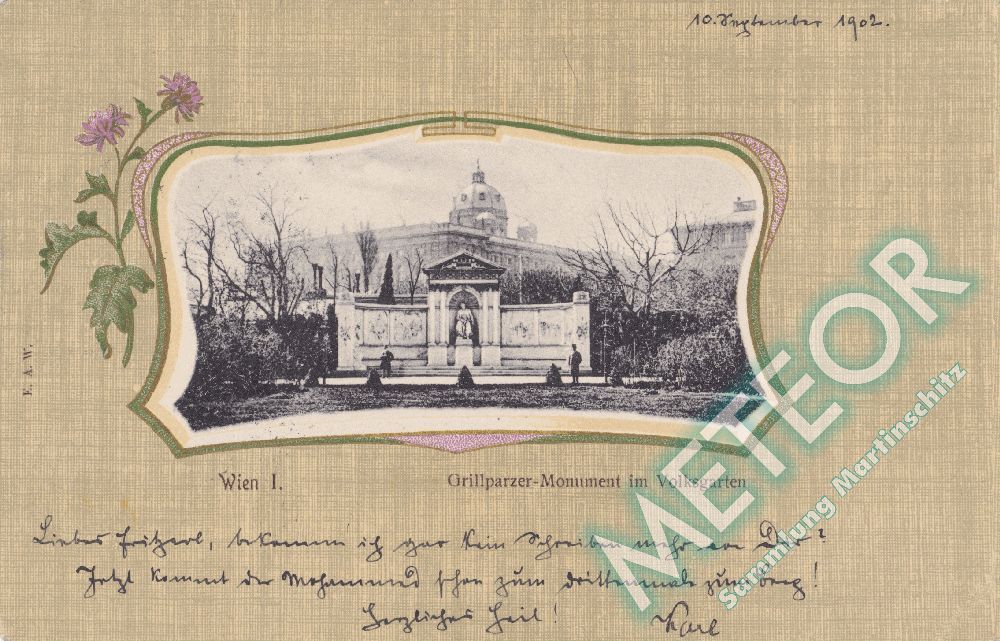 10. September 1902.
E. A. W.
Wien I.
Grillparzer-Monument im Volksgarten
METEOR
Sammlung Martinschitz
Liebes Fritzerl, bekomme ich gar kein Schreiben mehr von Dir?
Jetzt kommt der Mohammed schon zum drittenmale zum Berg!
Herzliches Heil! Karl